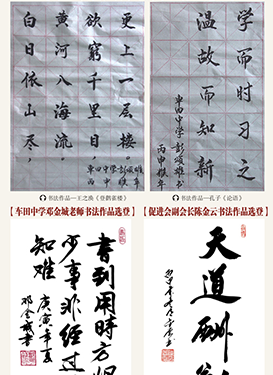 更上一层楼。
欲窮千里目，
黄河入海流。
白日依山尽，
学而时习之
温故而知新
车田中学 彭颂雄书
丙申猴年
书法作品—王之涣《登鹳雀楼》
书法作品—孔子《论语》
【车田中学邓金城老师书法作品选登】
【促进会副会长陈金云书法作品选登】
書到用時方恨
少事非經过
知难 庚寅年夏
邓金城書
天道酬